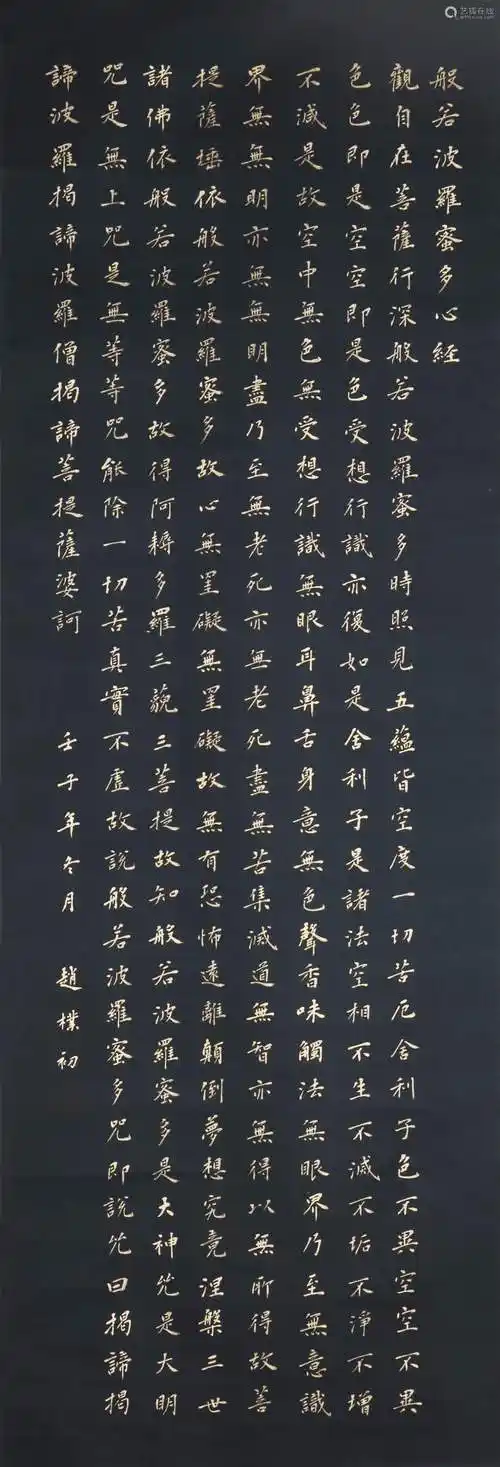 艺狐在线
般若波羅蜜多心経
觀自在菩薩行深般若波羅蜜多時照見五蘊皆空度一切苦厄舍利子色不異空空不異
色色即是空空即是色受想行識亦復如是舍利子是諸法空相不生不滅不垢不淨不增
不減是故空中無色無受想行識無眼耳鼻舌身意無色聲香味觸法無眼界乃至無意識
界無無明亦無無明盡乃至無老死亦無老死盡無苦集滅道無智亦無得以無所得故菩
提薩埵依般若波羅蜜多故心無罣礙無罣礙故無有恐怖遠離顛倒夢想究竟涅槃三世
諸佛依般若波羅蜜多故得阿耨多羅三藐三菩提故知般若波羅蜜多是大神咒是大明
咒是無上咒是無等等咒能除一切苦真實不虛故說般若波羅蜜多咒即說咒曰揭諦揭
諦波羅揭諦波羅僧揭諦菩提薩婆訶 壬子年冬月 趙樸初